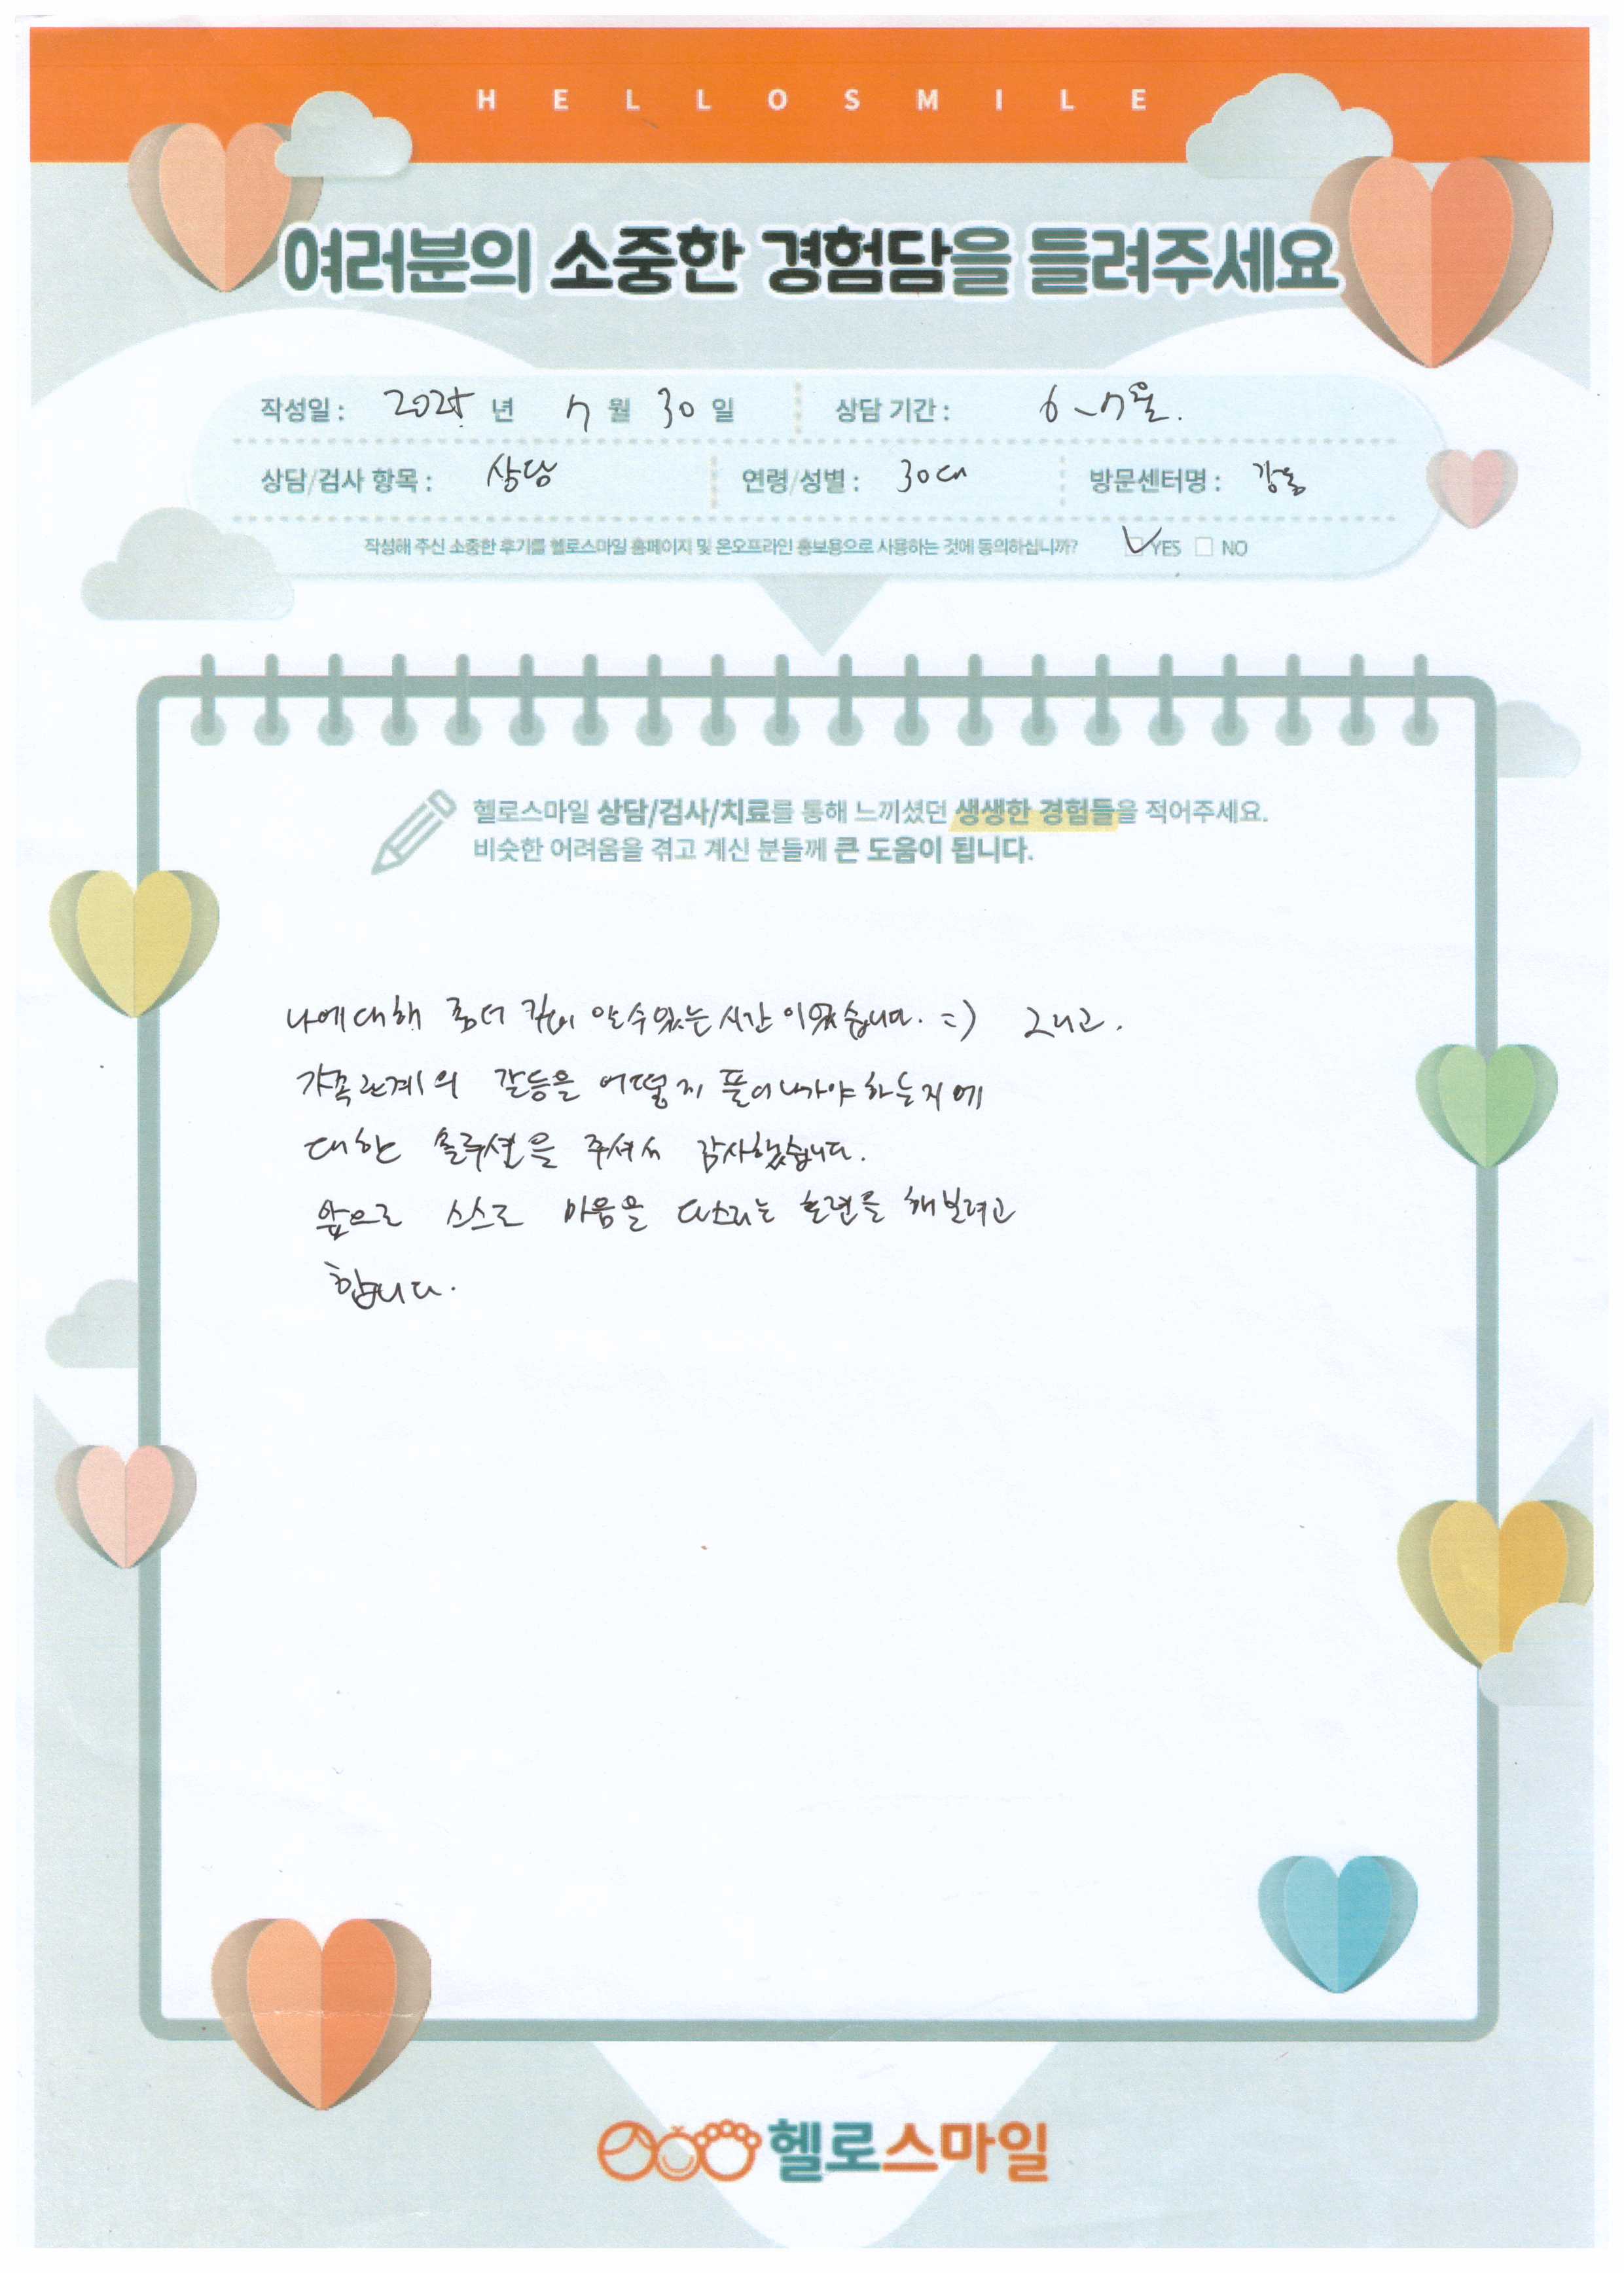 HELLOSMILE
여러분의 소중한 경험담을 들려주세요
작성일 : 2025 년 7 월 30 일 상담 기간 : 6-7월.
상담/검사 항목 : 상담 연령/성별 : 30대 방문센터명 : 강동
작성해 주신 소중한 후기를 헬로스마일 홈페이지 및 온오프라인 홍보용으로 사용하는 것에 동의하십니까? YES NO
헬로스마일 상담/검사/치료를 통해 느끼셨던 생생한 경험들을 적어주세요.
비슷한 어려움을 겪고 계신 분들께 큰 도움이 됩니다.
나에대해 좀더 깊이 알수있는 시간 이었습니다. =) 그리고.
가족관계의 갈등을 어떻게 풀어나가야 하는지에
대한 솔루션을 주셔서 감사했습니다.
앞으로 스스로 마음을 다스리는 훈련를 해보려고
합니다.
헬로스마일